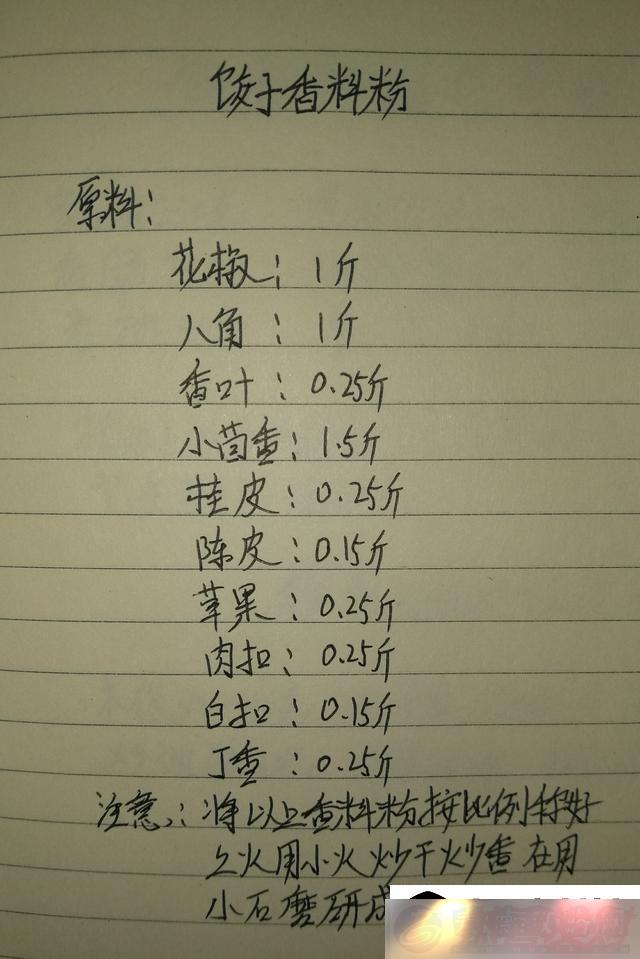 饺子香料粉
原料:
花椒: 1斤
八角: 1斤
香叶: 0.25斤
小茴香: 1.5斤
桂皮: 0.25斤
陈皮: 0.15斤
苹果: 0.25斤
肉扣: 0.25斤
白扣: 0.15斤
丁香: 0.25斤
注意: 将以上香料粉按比例称好
上火用小火炒干炒香在用
小石磨研成